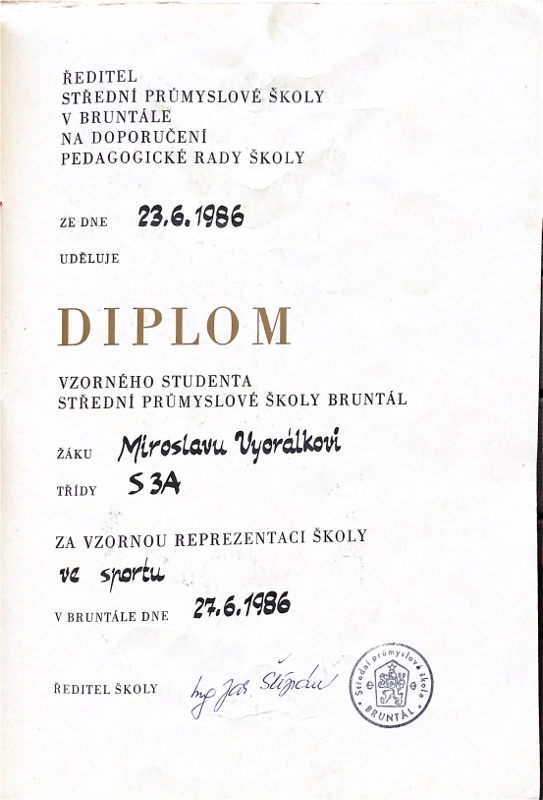 ŘEDITEL
STŘEDNÍ PRŮMYSLOVÉ ŠKOLY
V BRUNTÁLE
NA DOPORUČENÍ
PEDAGOGICKÉ RADY ŠKOLY
ZE DNE 23.6.1986
UDĚLUJE
DIPLOM
VZORNÉHO STUDENTA
STŘEDNÍ PRŮMYSLOVÉ ŠKOLY BRUNTÁL
ŽÁKU Miroslavu Vyorálkovi
TŘÍDY S3A
ZA VZORNOU REPREZENTACI ŠKOLY
ve sportu
V BRUNTÁLE DNE 27.6.1986
ŘEDITEL ŠKOLY Ing Jar. Štěpán
Střední průmyslová škola
BRUNTÁL